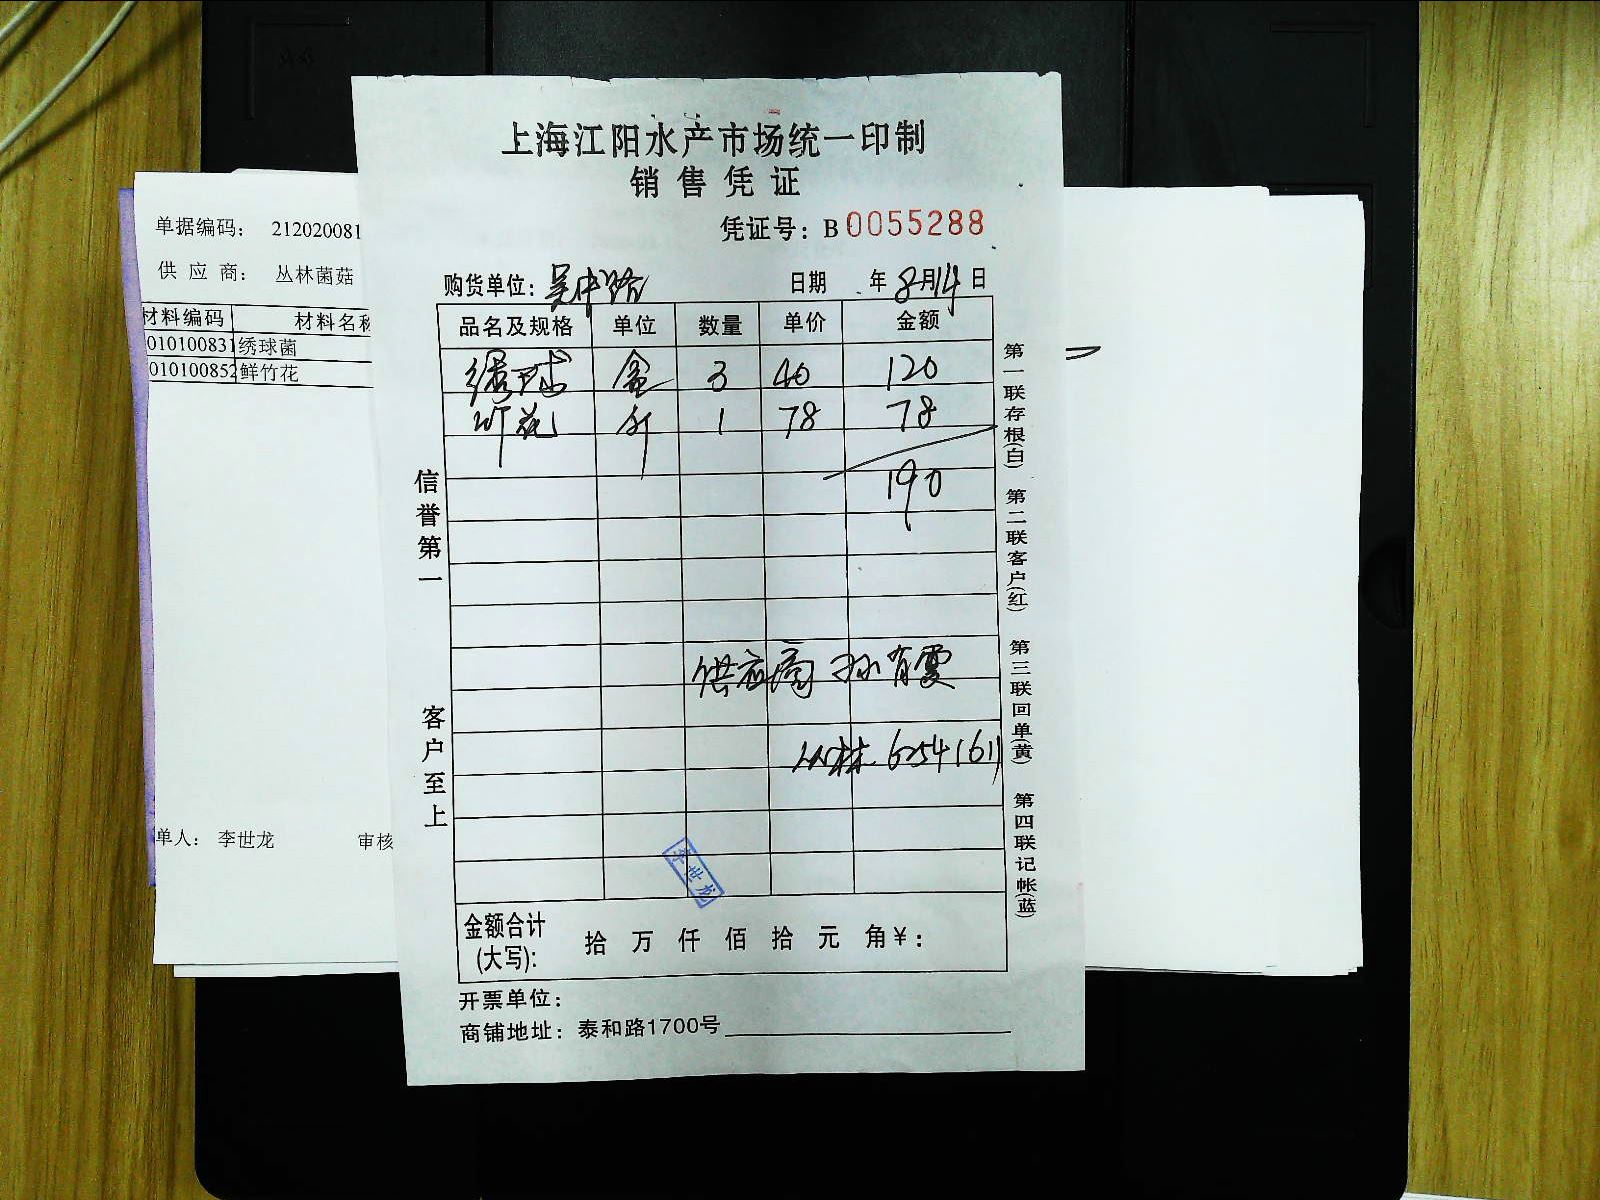 上海江阳水产市场统一印制
销售凭证
凭证号：B 0055288
购货单位：吴中路 日期 年8月14日
品名及规格 单位 数量 单价 金额
绣球 盒 3 40 120
竹花 斤 1 78 78
190
供应商 孙肖霞
丛林 6254161
李世龙
金额合计(大写): 拾 万 仟 佰 拾 元 角 ¥:
开票单位：
商铺地址：泰和路1700号
信誉第一
客户至上
第一联存根(白) 第二联客户(红) 第三联回单(黄) 第四联记帐(蓝)
单据编码： 212020081
供 应 商： 丛林菌菇
材料编码 材料名称
010100831 绣球菌
010100852 鲜竹花
单人： 李世龙 审核